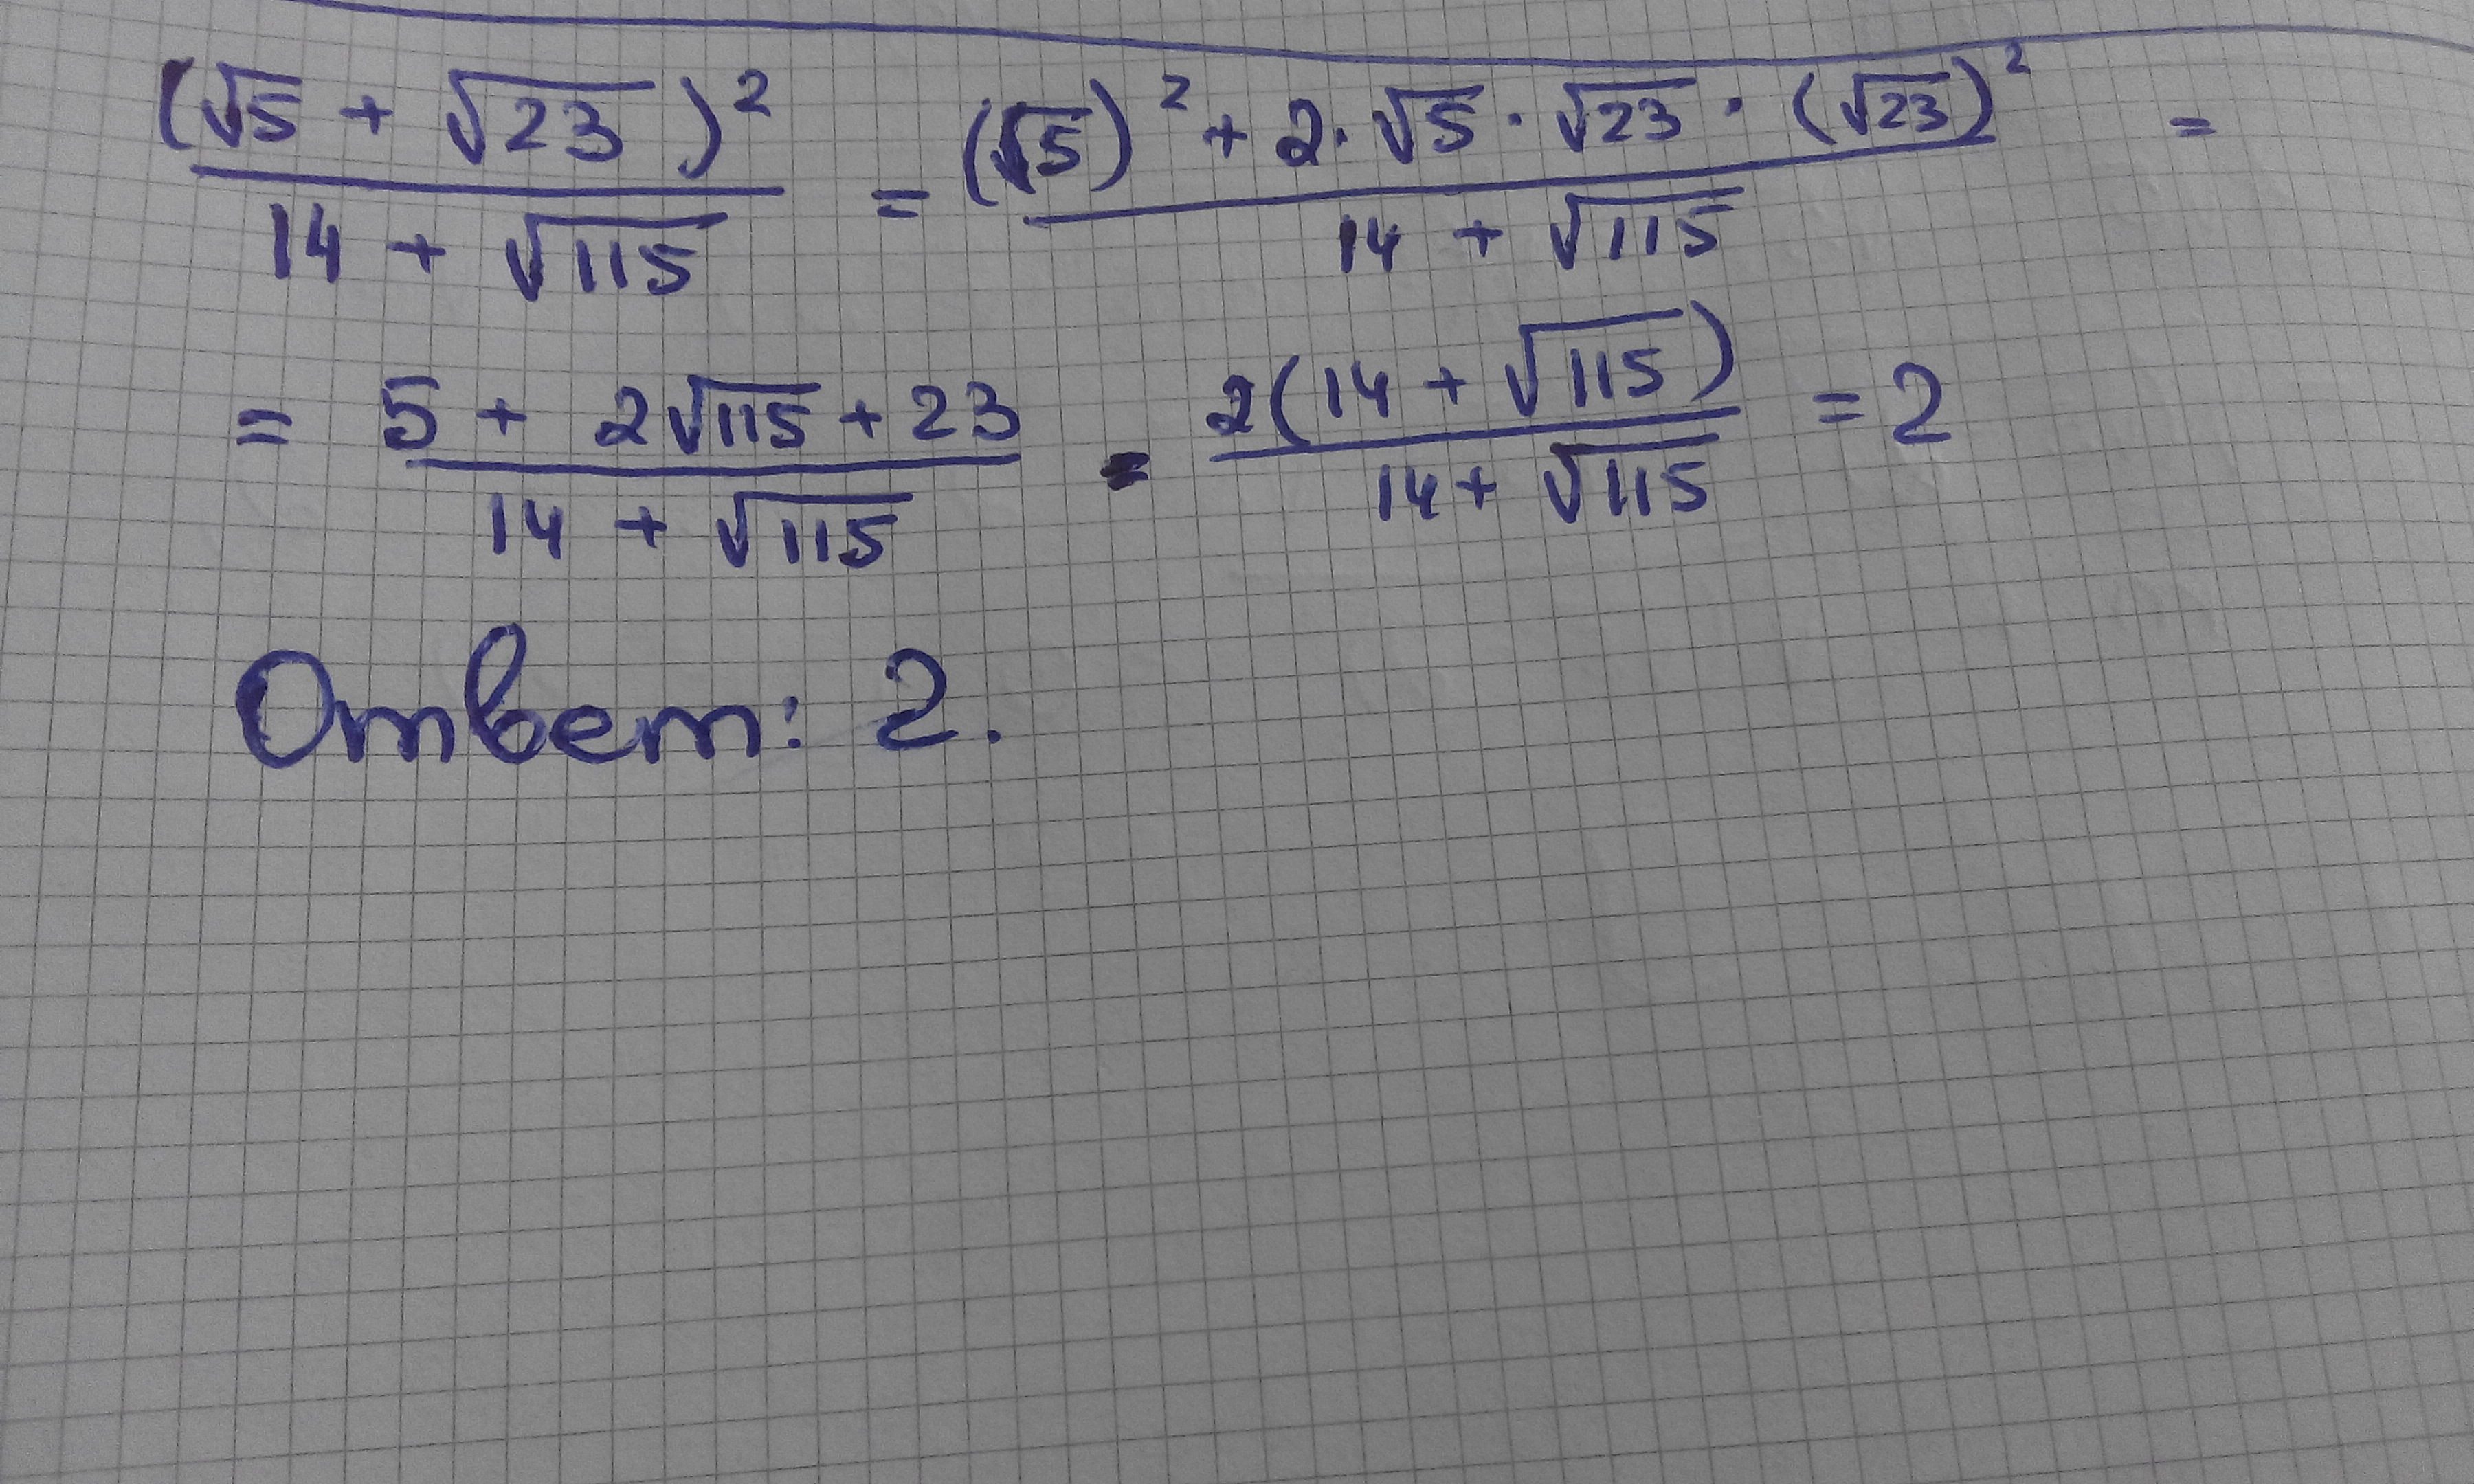 (√5 + √23)² / (14 + √115) = ((√5)² + 2·√5·√23·(√23)²) / (14 + √115) =
= (5 + 2√115 + 23) / (14 + √115) = 2(14 + √115) / (14 + √115) = 2
Ответ: 2.